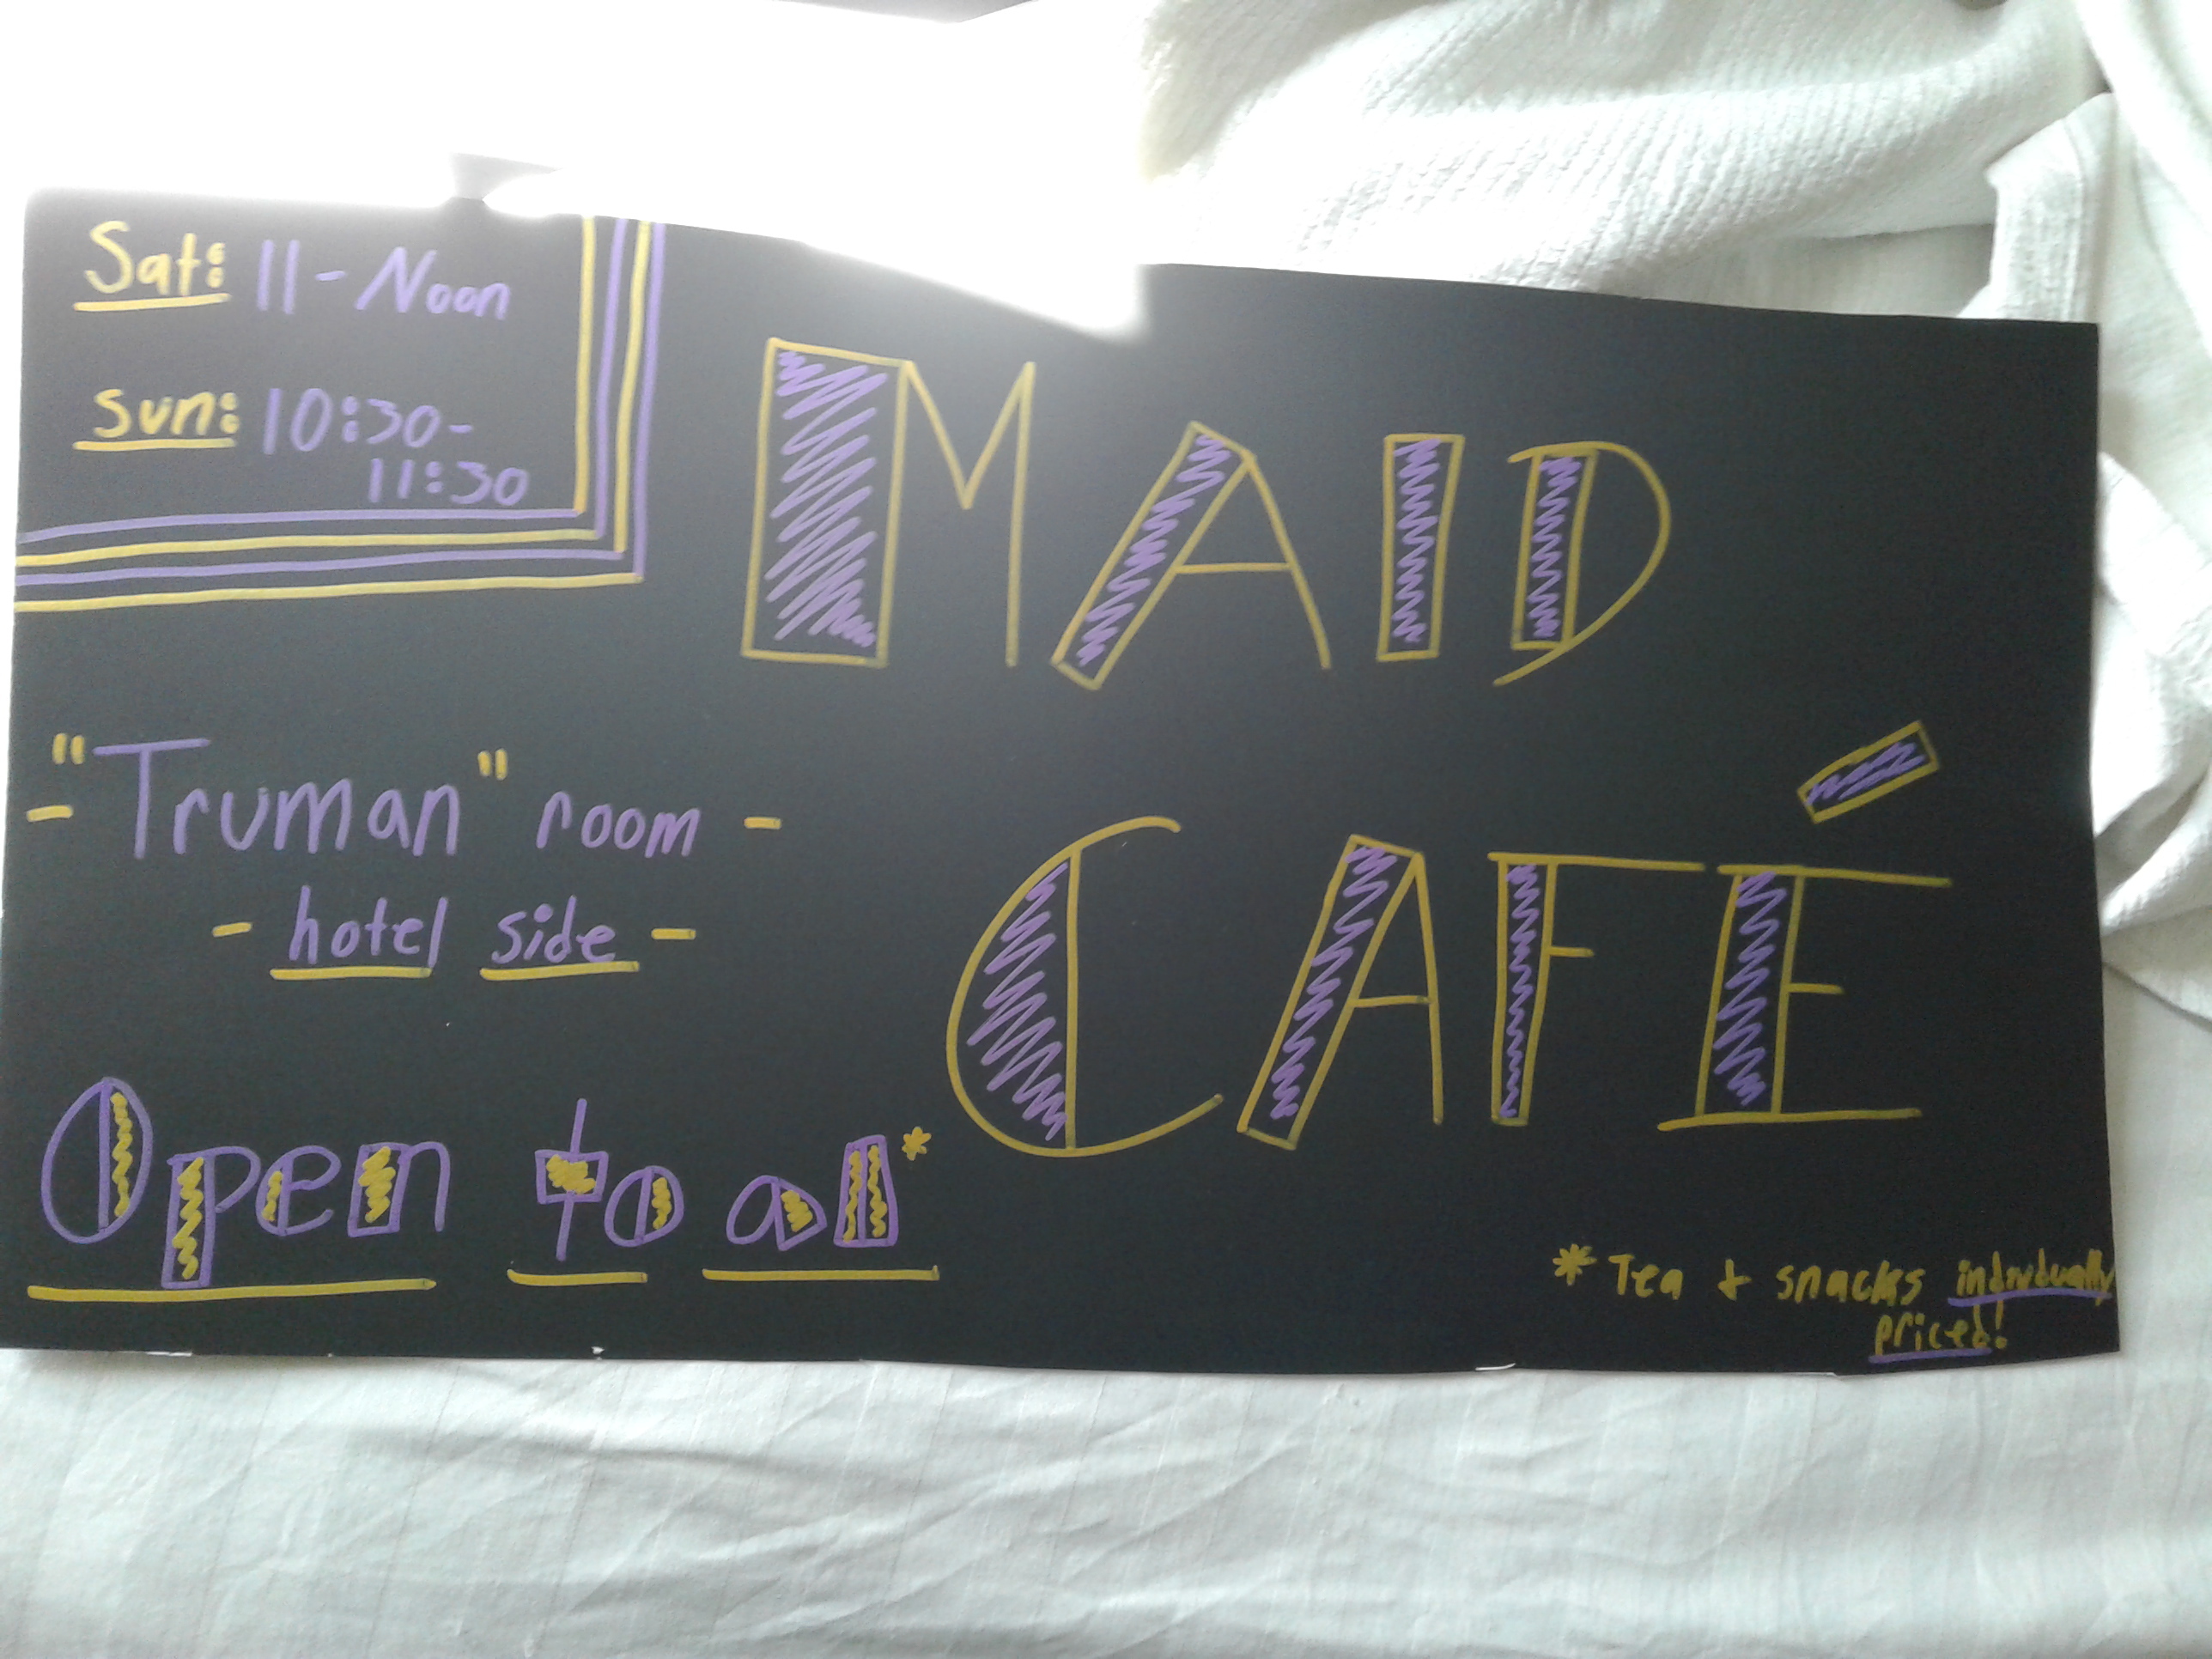 Sat: 11 - Noon
Sun: 10:30 -
11:30
MAID
CAFÉ
- "Truman" room -
- hotel side -
Open to all*
* Tea + snacks individually
priced!